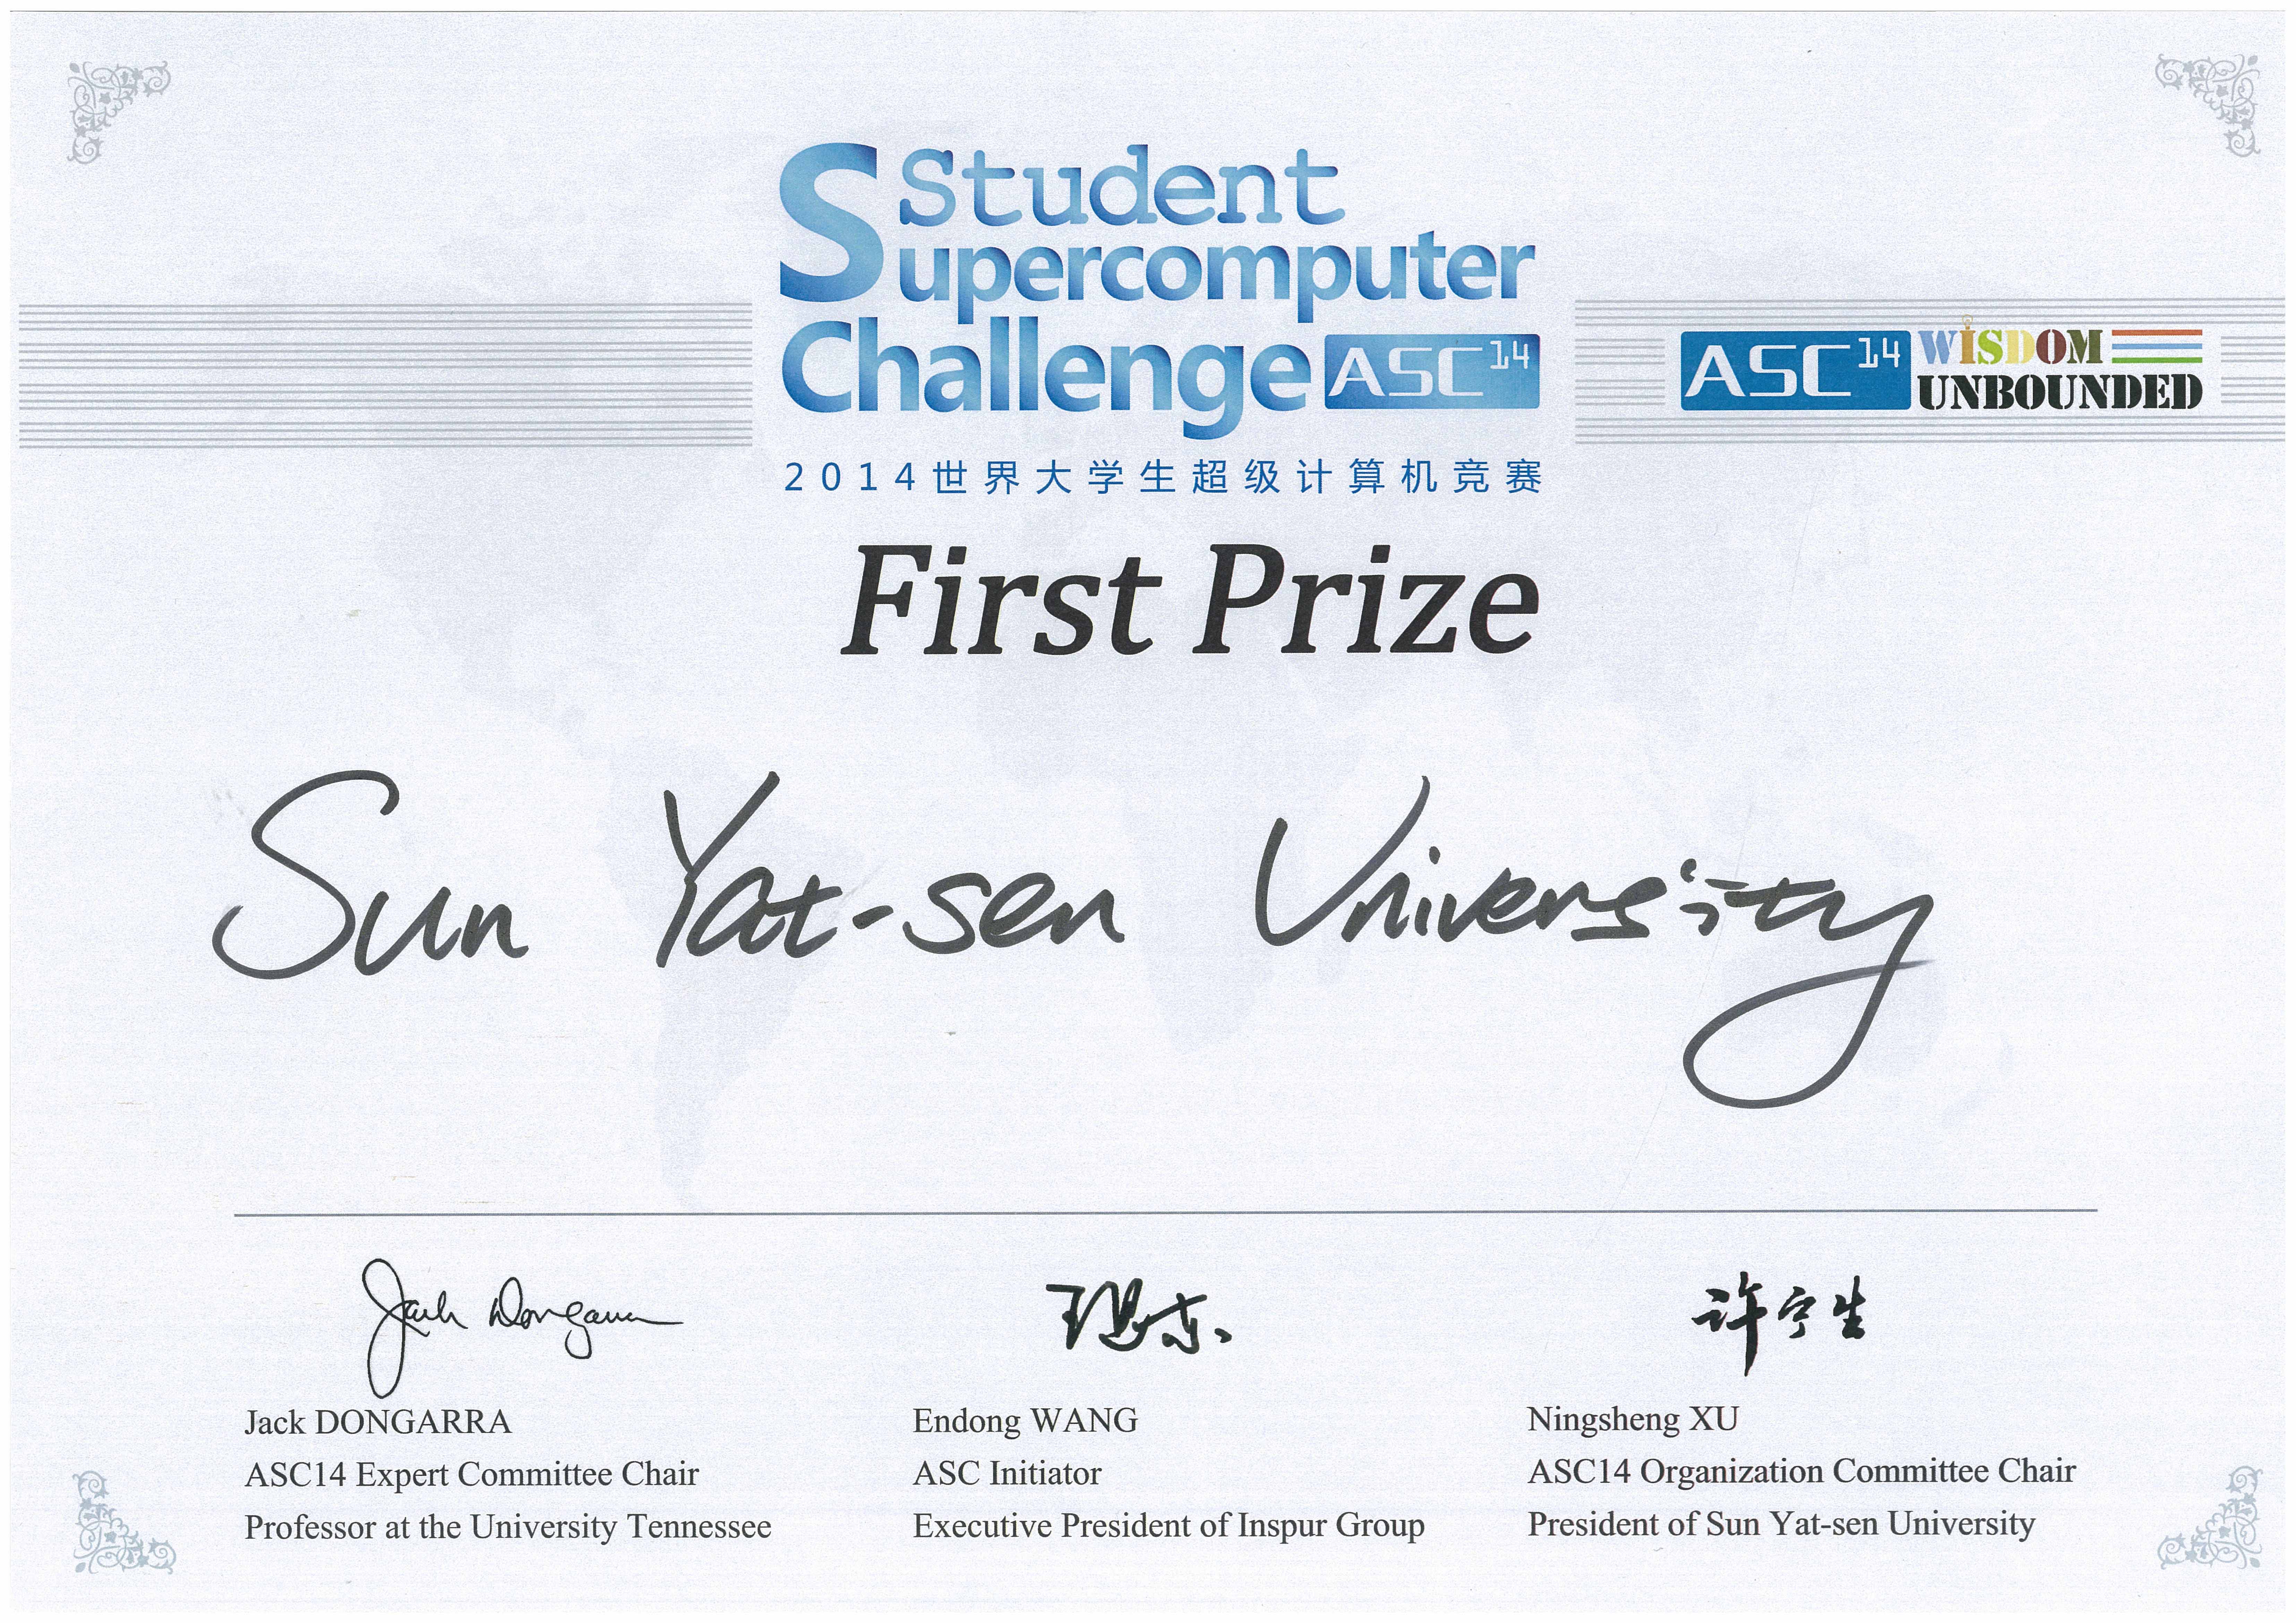 Student
Supercomputer
Challenge ASC14
ASC14 WISDOM
UNBOUNDED
2014世界大学生超级计算机竞赛
First Prize
Sun Yat-sen University
Jack Dongarra
王恩东
许宁生
Jack DONGARRA
ASC14 Expert Committee Chair
Professor at the University Tennessee
Endong WANG
ASC Initiator
Executive President of Inspur Group
Ningsheng XU
ASC14 Organization Committee Chair
President of Sun Yat-sen University